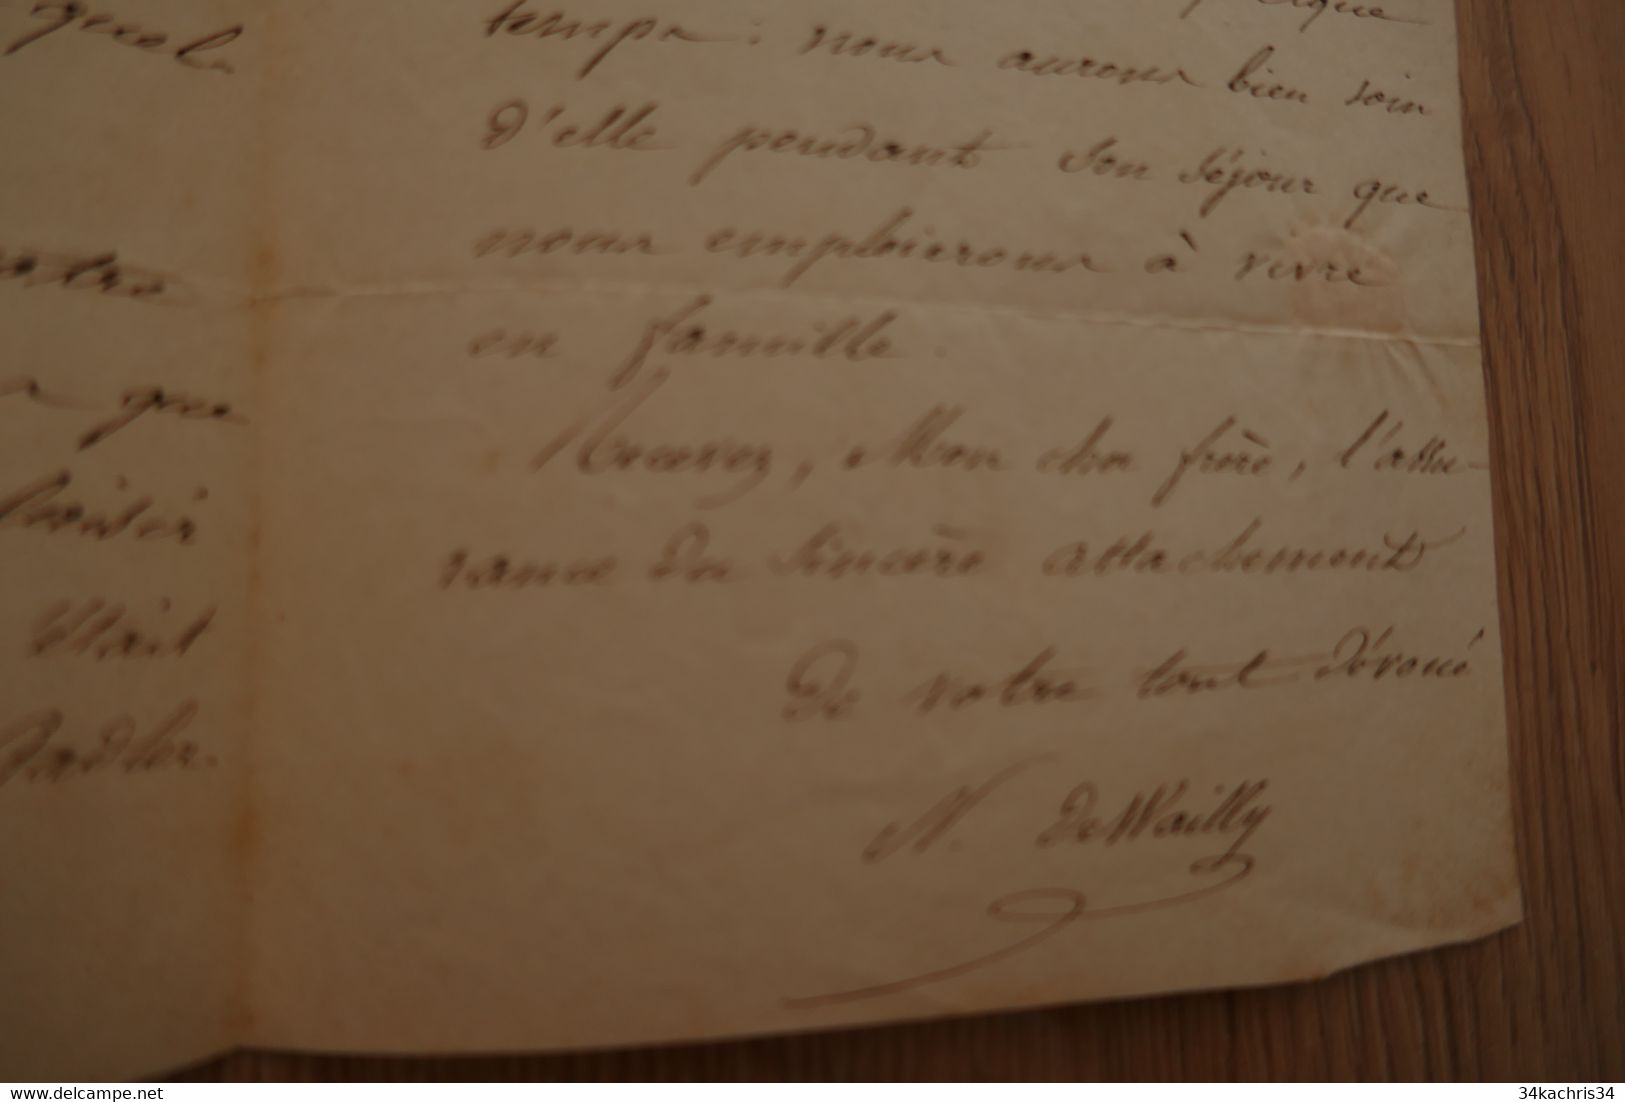 quel
votre
que
plaisir
était
Sadler.
quelque
temps : nous aurons bien soin
d'elle pendant son séjour que
nous emploierons à vivre
en famille.
Recevez, Mon cher frère, l'assu-
rance du sincère attachement
de votre tout dévoué
N. de Wailly
www.delcampe.net
34kachris34